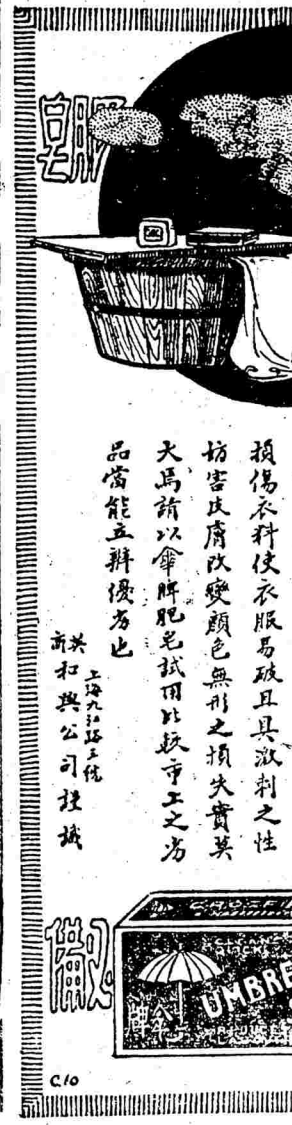 肥皂
損傷衣料使衣服易破且具激刺之性
妨害皮膚改變顏色無形之損失實莫
大焉請以傘牌肥皂試用比較市上之劣
品當能立辨優劣也
上海九江路三號
英商和興公司謹識
必備
傘牌
UMBRE
C.10